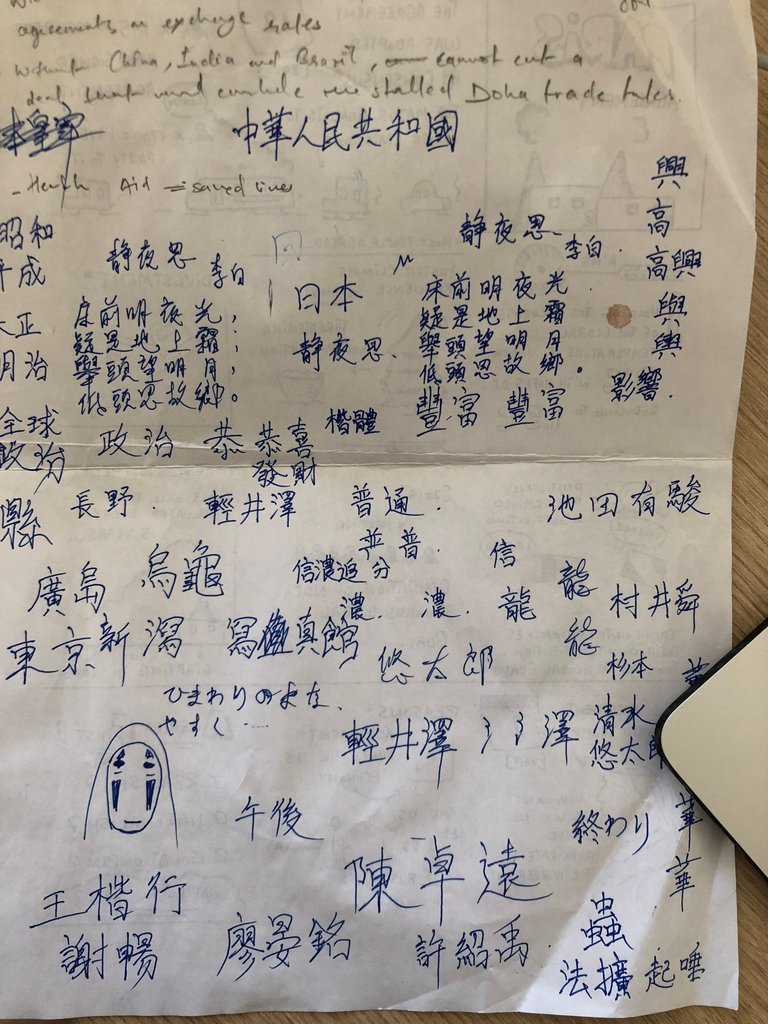 agreements on exchange rates
without China, India and Brazil, cannot cut a
deal and conclude the stalled Doha trade talks.
中華人民共和國
- Health Aid ⇒ saved lives
興
高
高興
興
興
影響.
昭和
平成
大正
明治
全球
政治
縣
静夜思
李白
床前明夜光，
疑是地上霜；
舉頭望明月，
低頭思故鄉。
日本
静夜思.
静夜思
李白.
床前明夜光
疑是地上霜
舉頭望明月
低頭思故鄉。
豐富 豐富
楷體
政治 恭恭喜
發財
長野. 輕井澤 普通.
普普.
池田有駿
廣島 烏龜
信濃追分
濃. 濃.
信
龍 龍
龍
村井舜
東京新瀉 寫真館
悠太郎
杉本
ひまわりのよな.
やすく…
輕井澤 氵氵澤
清水
悠太郎
午後
終わり
華
華
陳卓遠
王楷行
謝暢
廖晏銘
許紹禹
蟲
法擴 起唾